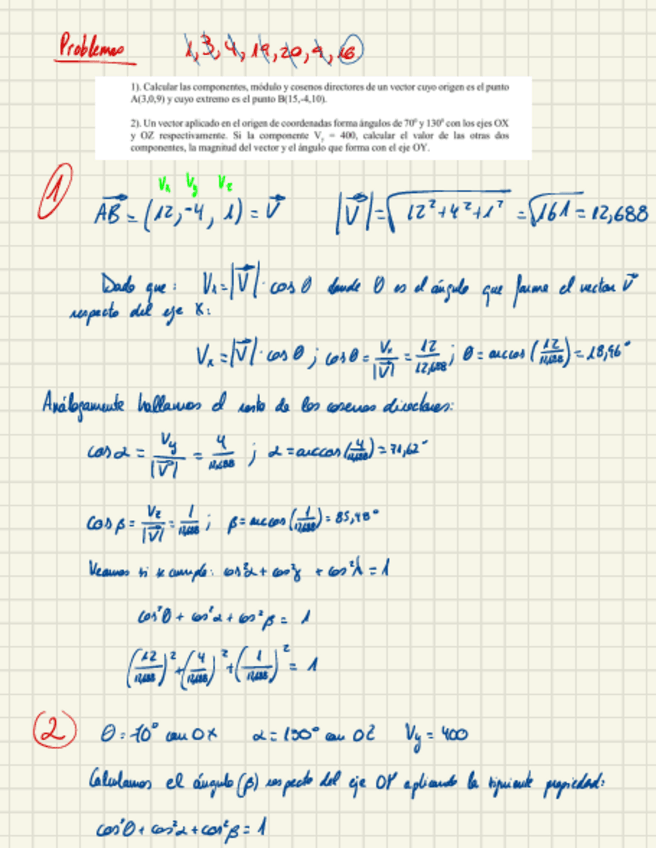 Problemas 1, 3, 4, 19, 20, 9, 16
1). Calcular las componentes, módulo y cosenos directores de un vector cuyo origen es el punto
A(3,0,9) y cuyo extremo es el punto B(15,-4,10).
2). Un vector aplicado en el origen de coordenadas forma ángulos de 70º y 130º con los ejes OX
y OZ respectivamente. Si la componente Vy = 400, calcular el valor de las otras dos
componentes, la magnitud del vector y el ángulo que forma con el eje OY.
Vx Vy Vz
1 AB = (12, -4, 1) = V |V| = √12² + 4² + 1² = √161 = 12,688
Dado que: Vx = |V| · cos θ donde θ es el ángulo que forma el vector V
respecto del eje X:
Vx = |V| · cos θ ; cos θ = Vx/|V| = 12/12,688 ; θ = arccos (12/12,688) = 18,96°
Análogamente hallamos el resto de los cosenos directores:
cos α = Vy/|V| = 4/12,688 ; α = arccos (4/12,688) = 71,62°
cos β = Vz/|V| = 1/12,688 ; β = arccos (1/12,688) = 85,48°
Veamos si se cumple: cos²α + cos²γ + cos²λ = 1
cos²θ + cos²α + cos²β = 1
(12/12,688)² + (4/12,688)² + (1/12,688)² = 1
2 θ = 70° con OX α = 130° con OZ Vy = 400
Calculamos el ángulo (β) respecto del eje OY aplicando la siguiente propiedad:
cos²θ + cos²α + cos²β = 1